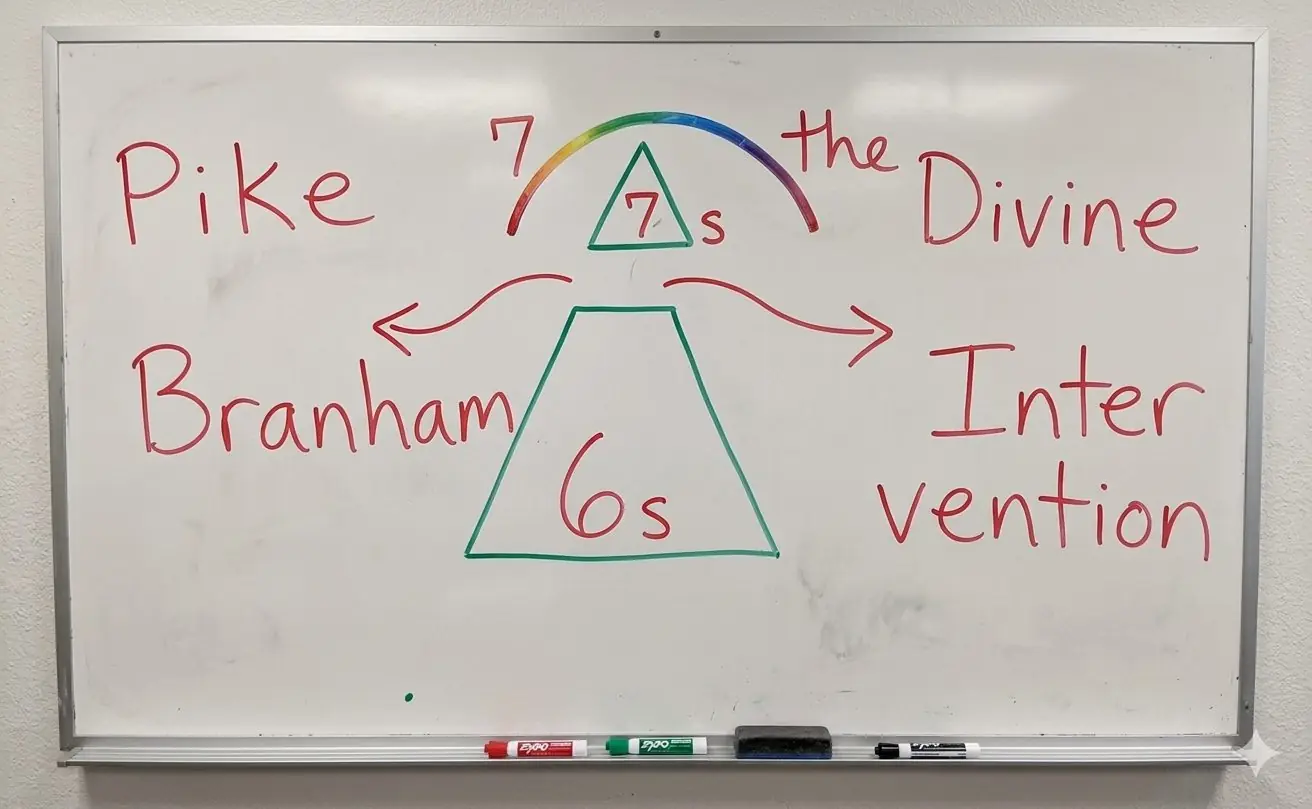 Pike
7
the
Divine
7
s
Branham
Inter
vention
6s
EXPO
EXPO
EXPO